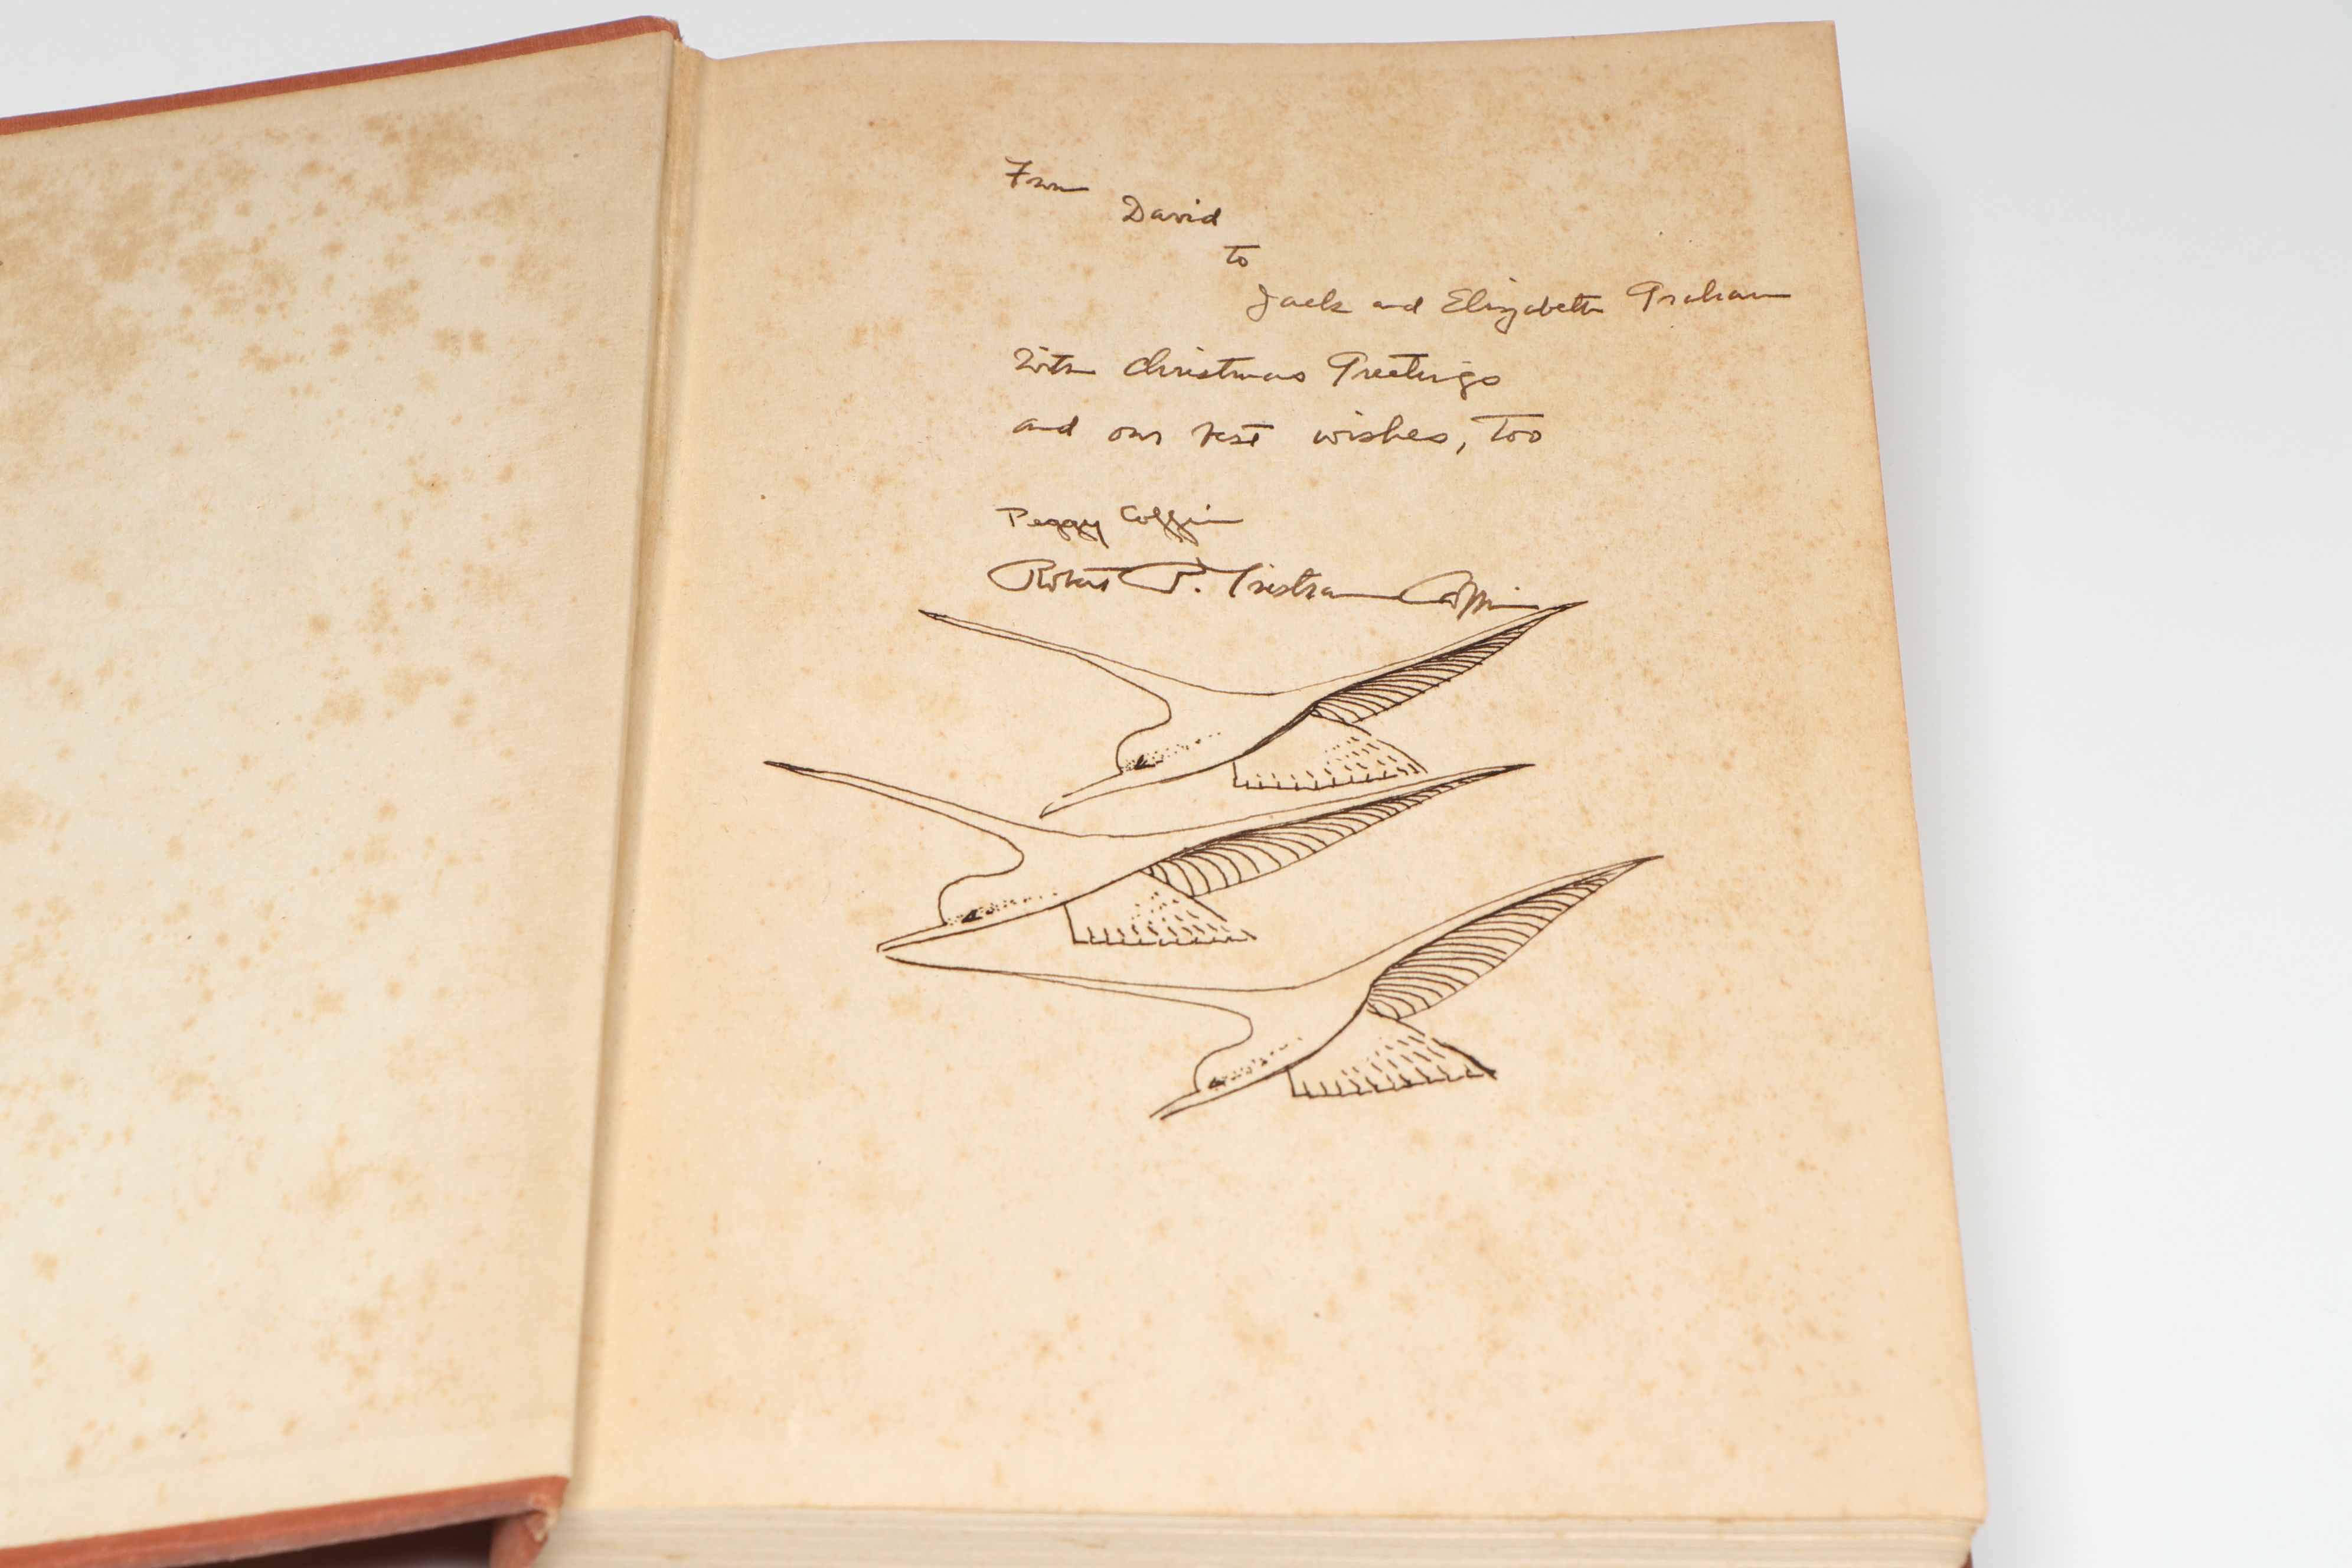 From
David
to
Jack and Elizabeth Graham
With Christmas Greetings
and our best wishes, too
Peggy Coffin
Robert P. Tristram Coffin